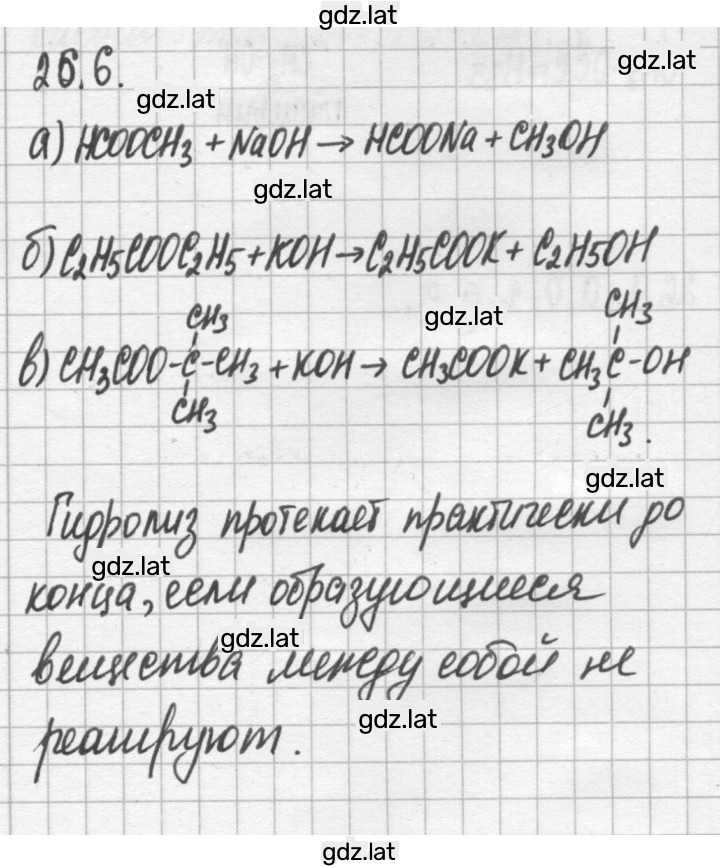 gdz.lat
26.6.
gdz.lat
gdz.lat
а) HCOOCH3 + NaOH → HCOONa + CH3OH
gdz.lat
б) C2H5COOC2H5 + KOH → C2H5COOK + C2H5OH
CH3 gdz.lat CH3
в) CH3COO-C-CH3 + KOH → CH3COOK + CH3C-OH
CH3 CH3.
gdz.lat
Гидролиз протекает практически до
gdz.lat
конца, если образующиеся
gdz.lat
вещества между собой не
gdz.lat
реагируют.
gdz.lat